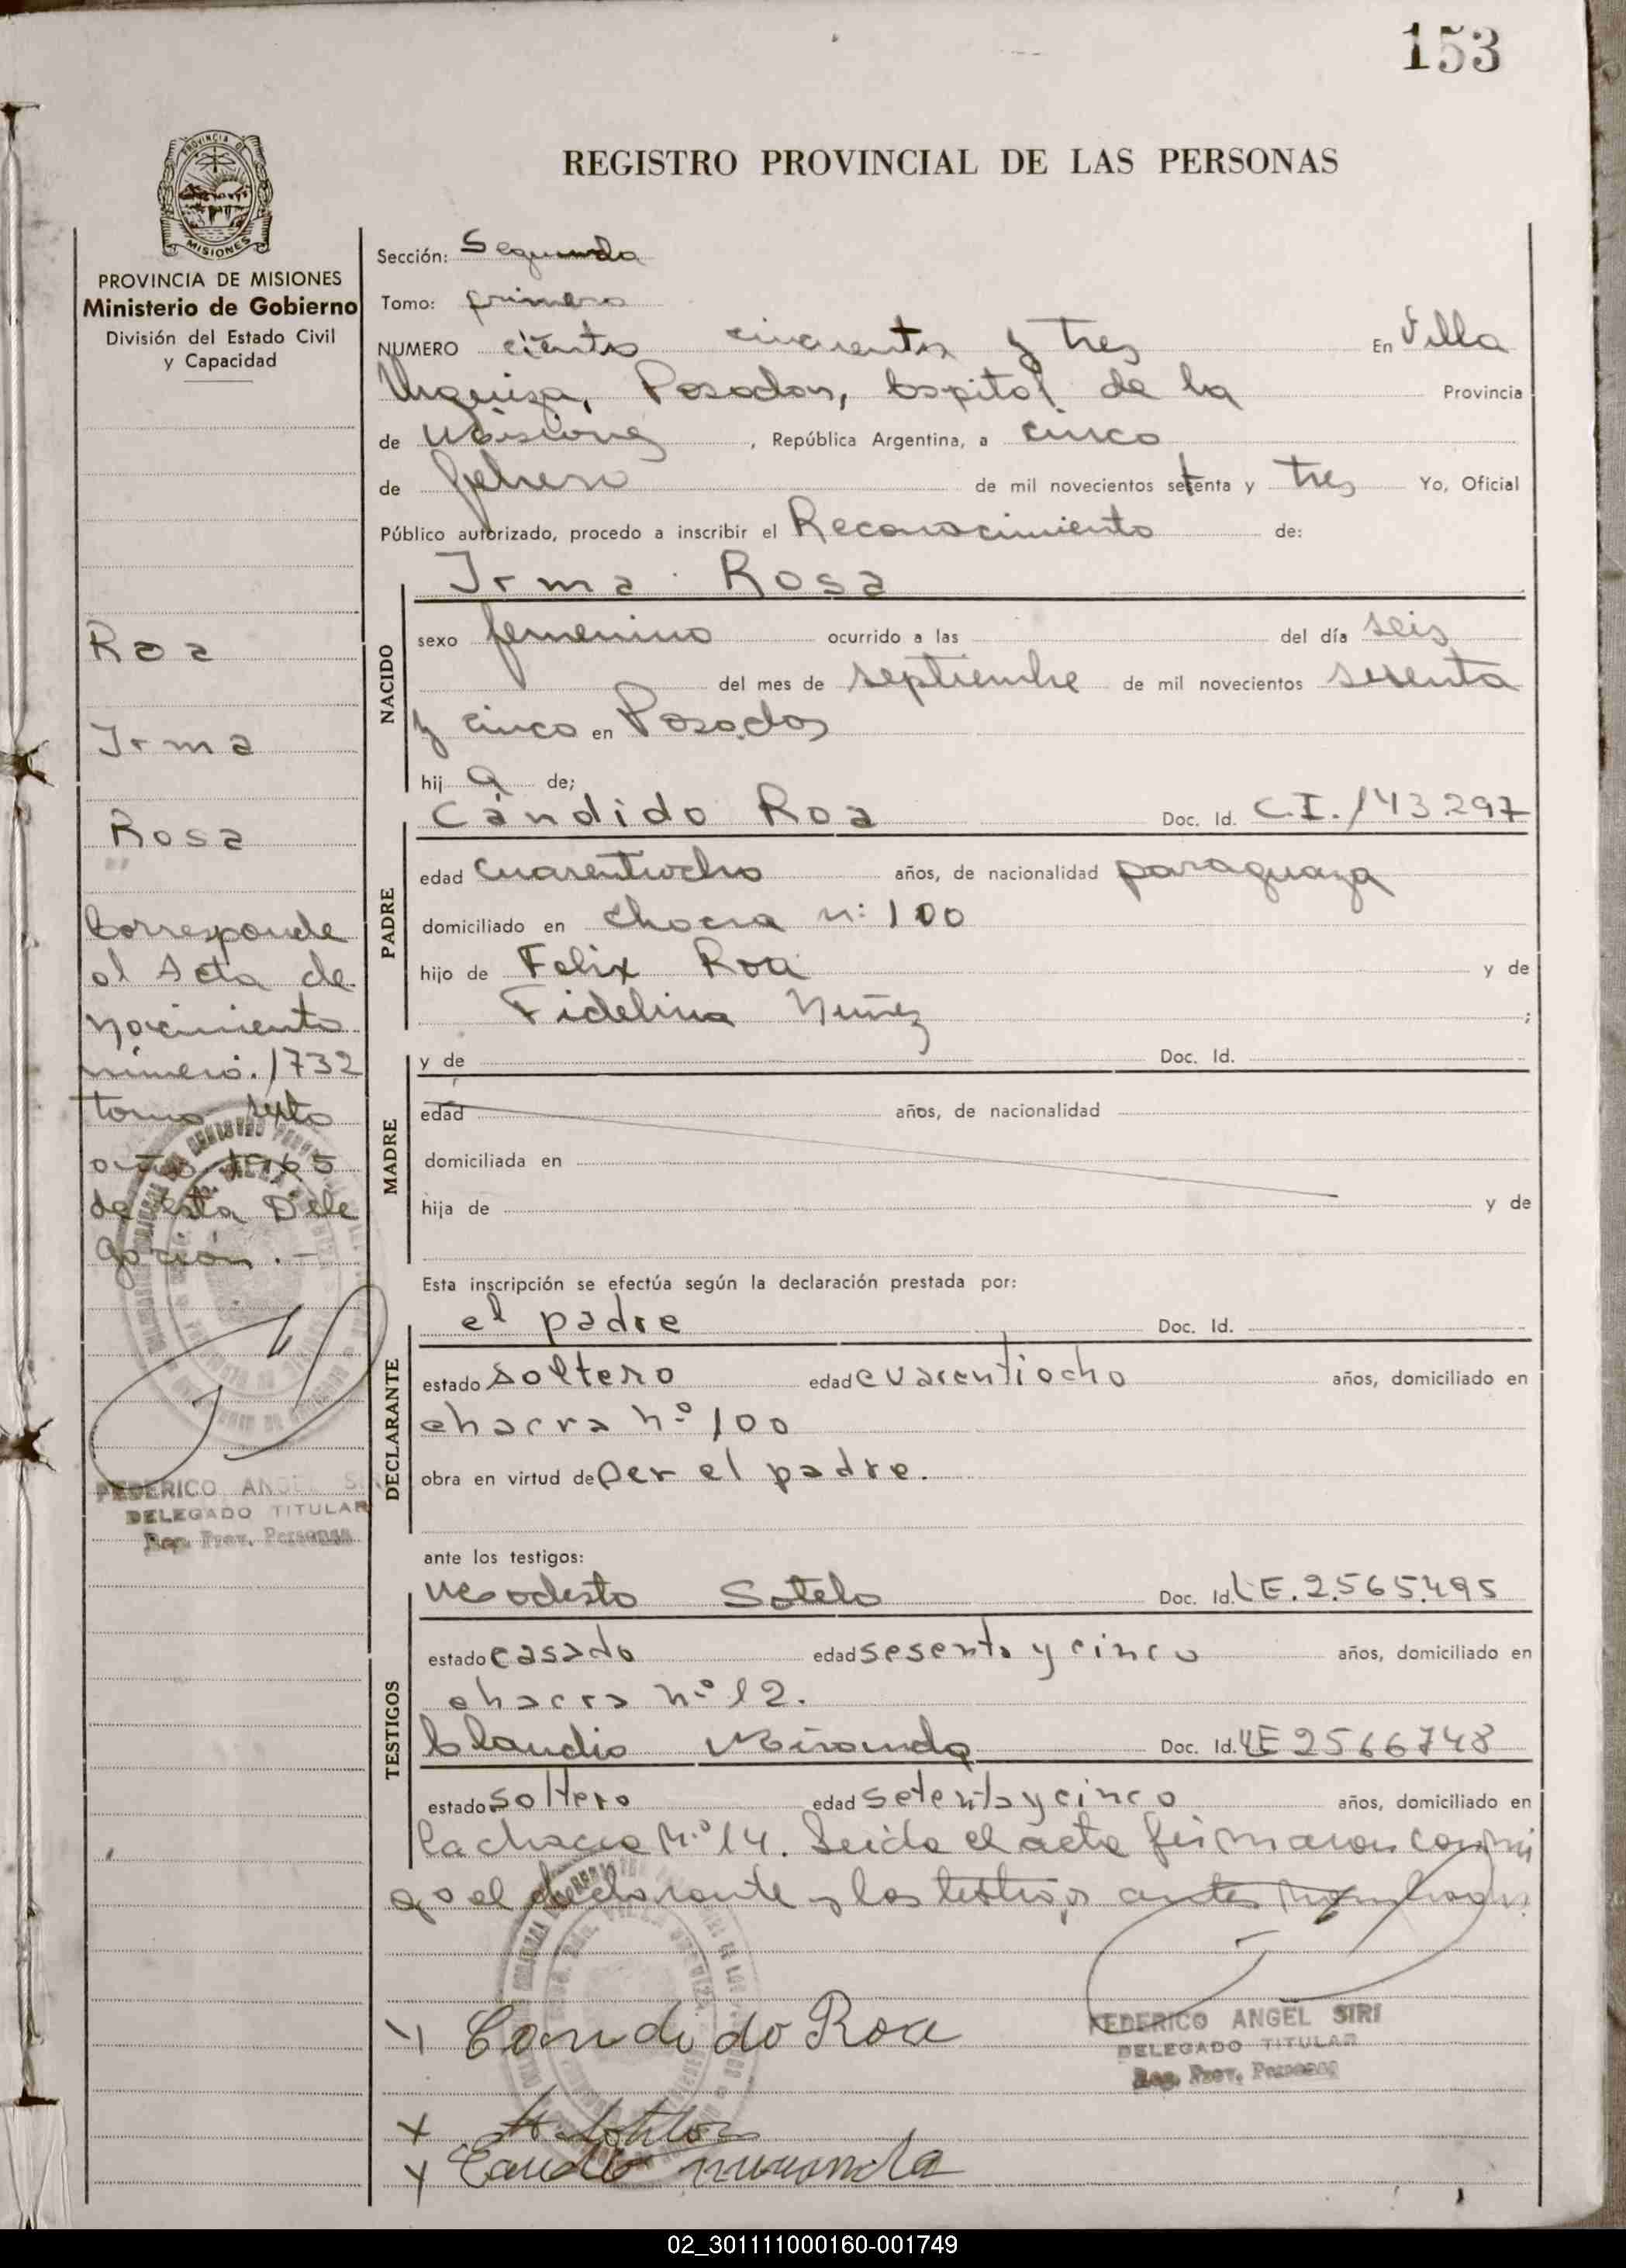 153
PROVINCIA DE
MISIONES
REGISTRO PROVINCIAL DE LAS PERSONAS
PROVINCIA DE MISIONES
Ministerio de Gobierno
División del Estado Civil
y Capacidad
Roa
Irma
Rosa
Corresponde
al Acta de
nacimiento
número: 1732
tomo sexto
año 1965
de esta Dele
gación.-
FEDERICO ANGEL SI
DELEGADO TITULAR
Reg. Prov. Personas
Sección: Segunda
Tomo: primero
NUMERO ciento cincuenta y tres En Villa
Urquiza, Posadas, Capital de la Provincia
de Misiones, República Argentina, a cinco
de febrero de mil novecientos setenta y tres Yo, Oficial
Público autorizado, procedo a inscribir el Reconocimiento de:
Irma Rosa
NACIDO
sexo femenino ocurrido a las del día seis
del mes de septiembre de mil novecientos sesenta
y cinco en Posadas
hij a de;
Cándido Roa Doc. Id. C.I. 143.297
PADRE
edad cuarentiocho años, de nacionalidad paraguaya
domiciliado en chacra n: 100
hijo de Felix Roa y de
Fidelina Nuñez ;
MADRE
y de Doc. Id.
edad años, de nacionalidad
domiciliada en
hija de y de
Esta inscripción se efectúa según la declaración prestada por:
el padre Doc. Id.
DECLARANTE
estado soltero edad cuarentiocho años, domiciliado en
chacra nº 100
obra en virtud de ser el padre.
ante los testigos:
TESTIGOS
Modesto Sotelo Doc. Id. L.E. 2.565.495
estado casado edad sesenta y cinco años, domiciliado en
chacra nº 12.
Claudio Miranda Doc. Id. LE 2566748
estado soltero edad setenta y cinco años, domiciliado en
la chacra Nº 14. Leida el acta firmaron conmi
go el declarante y los testigos antes nombrados.
Candido Roa
FEDERICO ANGEL SIRI
DELEGADO TITULAR
Reg. Prov. Personas
Claudio miranda
02_301111000160-001749